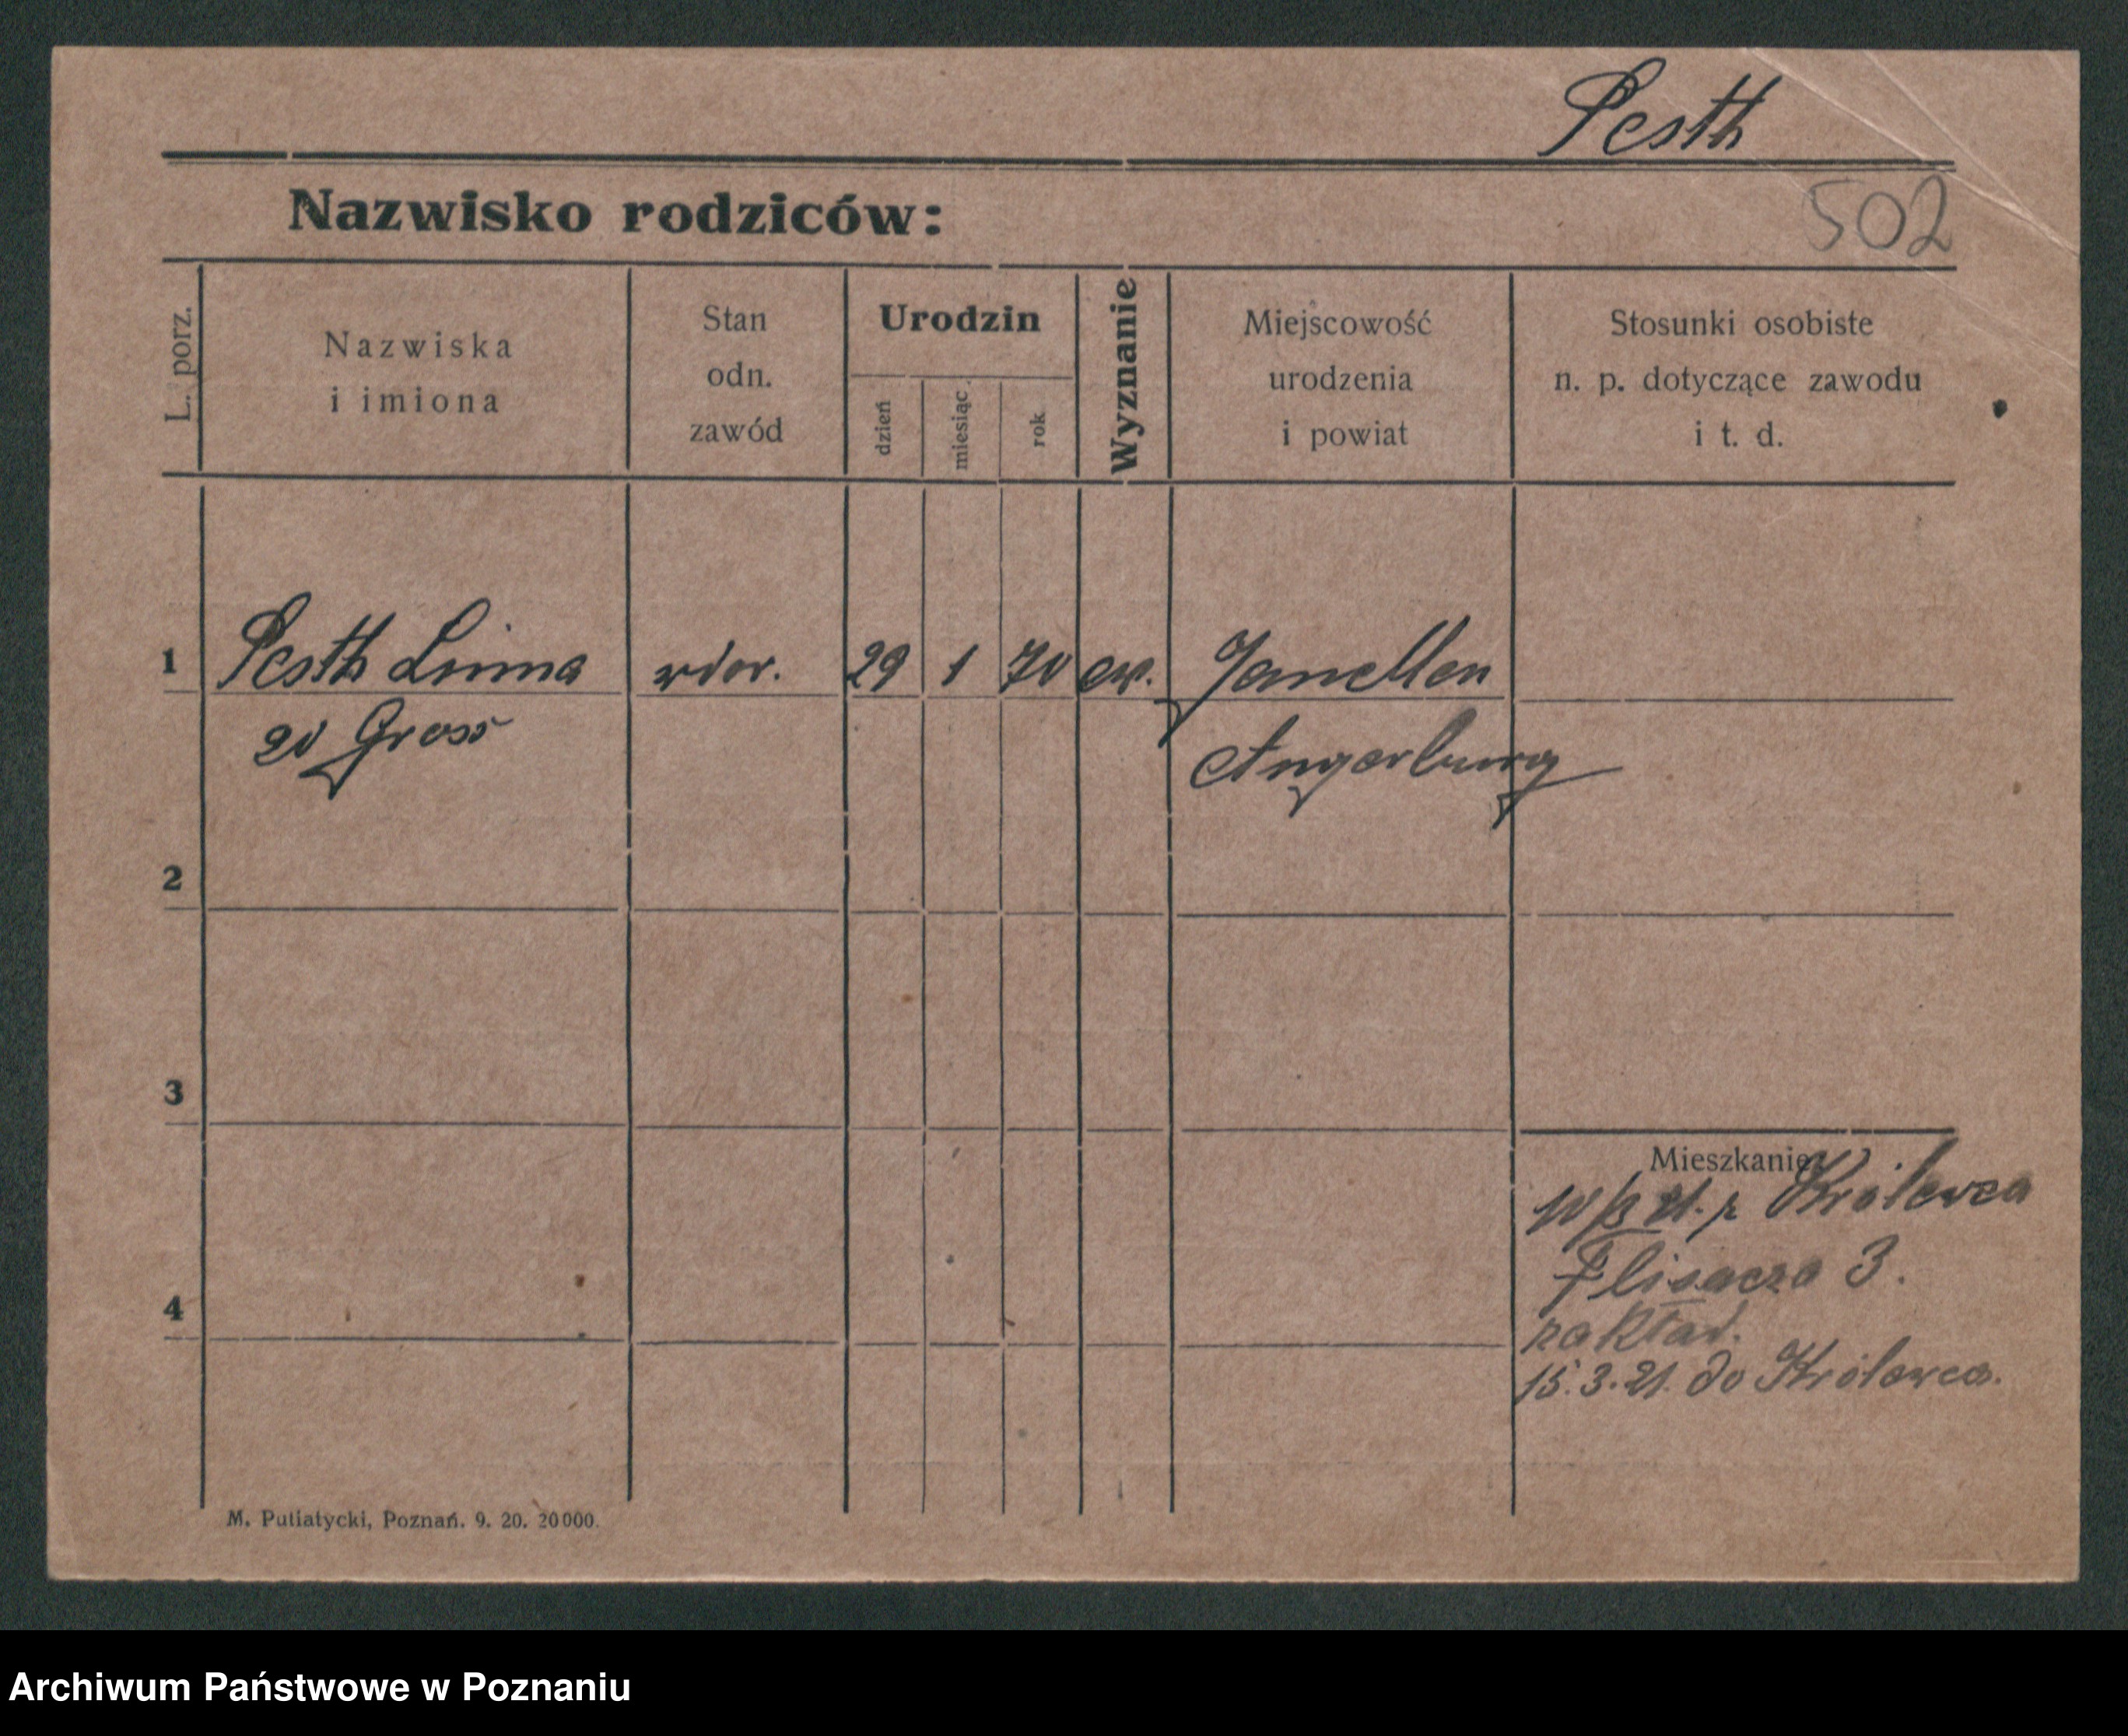 Pesth
Nazwisko rodziców:
502
L. porz.
Nazwiska
i imiona
Stan
odn.
zawód
Urodzin
dzień
miesiąc
rok
Wyznanie
Miejscowość
urodzenia
i powiat
Stosunki osobiste
n. p. dotyczące zawodu
i t. d.
1 Pesth Linna wdow. 29 1 70 ew. Janellen
zd Gross Angerburg
2
3
Mieszkanie:
21. z Królewca
Flisacza 3.
zakład.
4
15.3.21. do Królewca.
M. Putiatycki, Poznań. 9. 20. 20000.
Archiwum Państwowe w Poznaniu